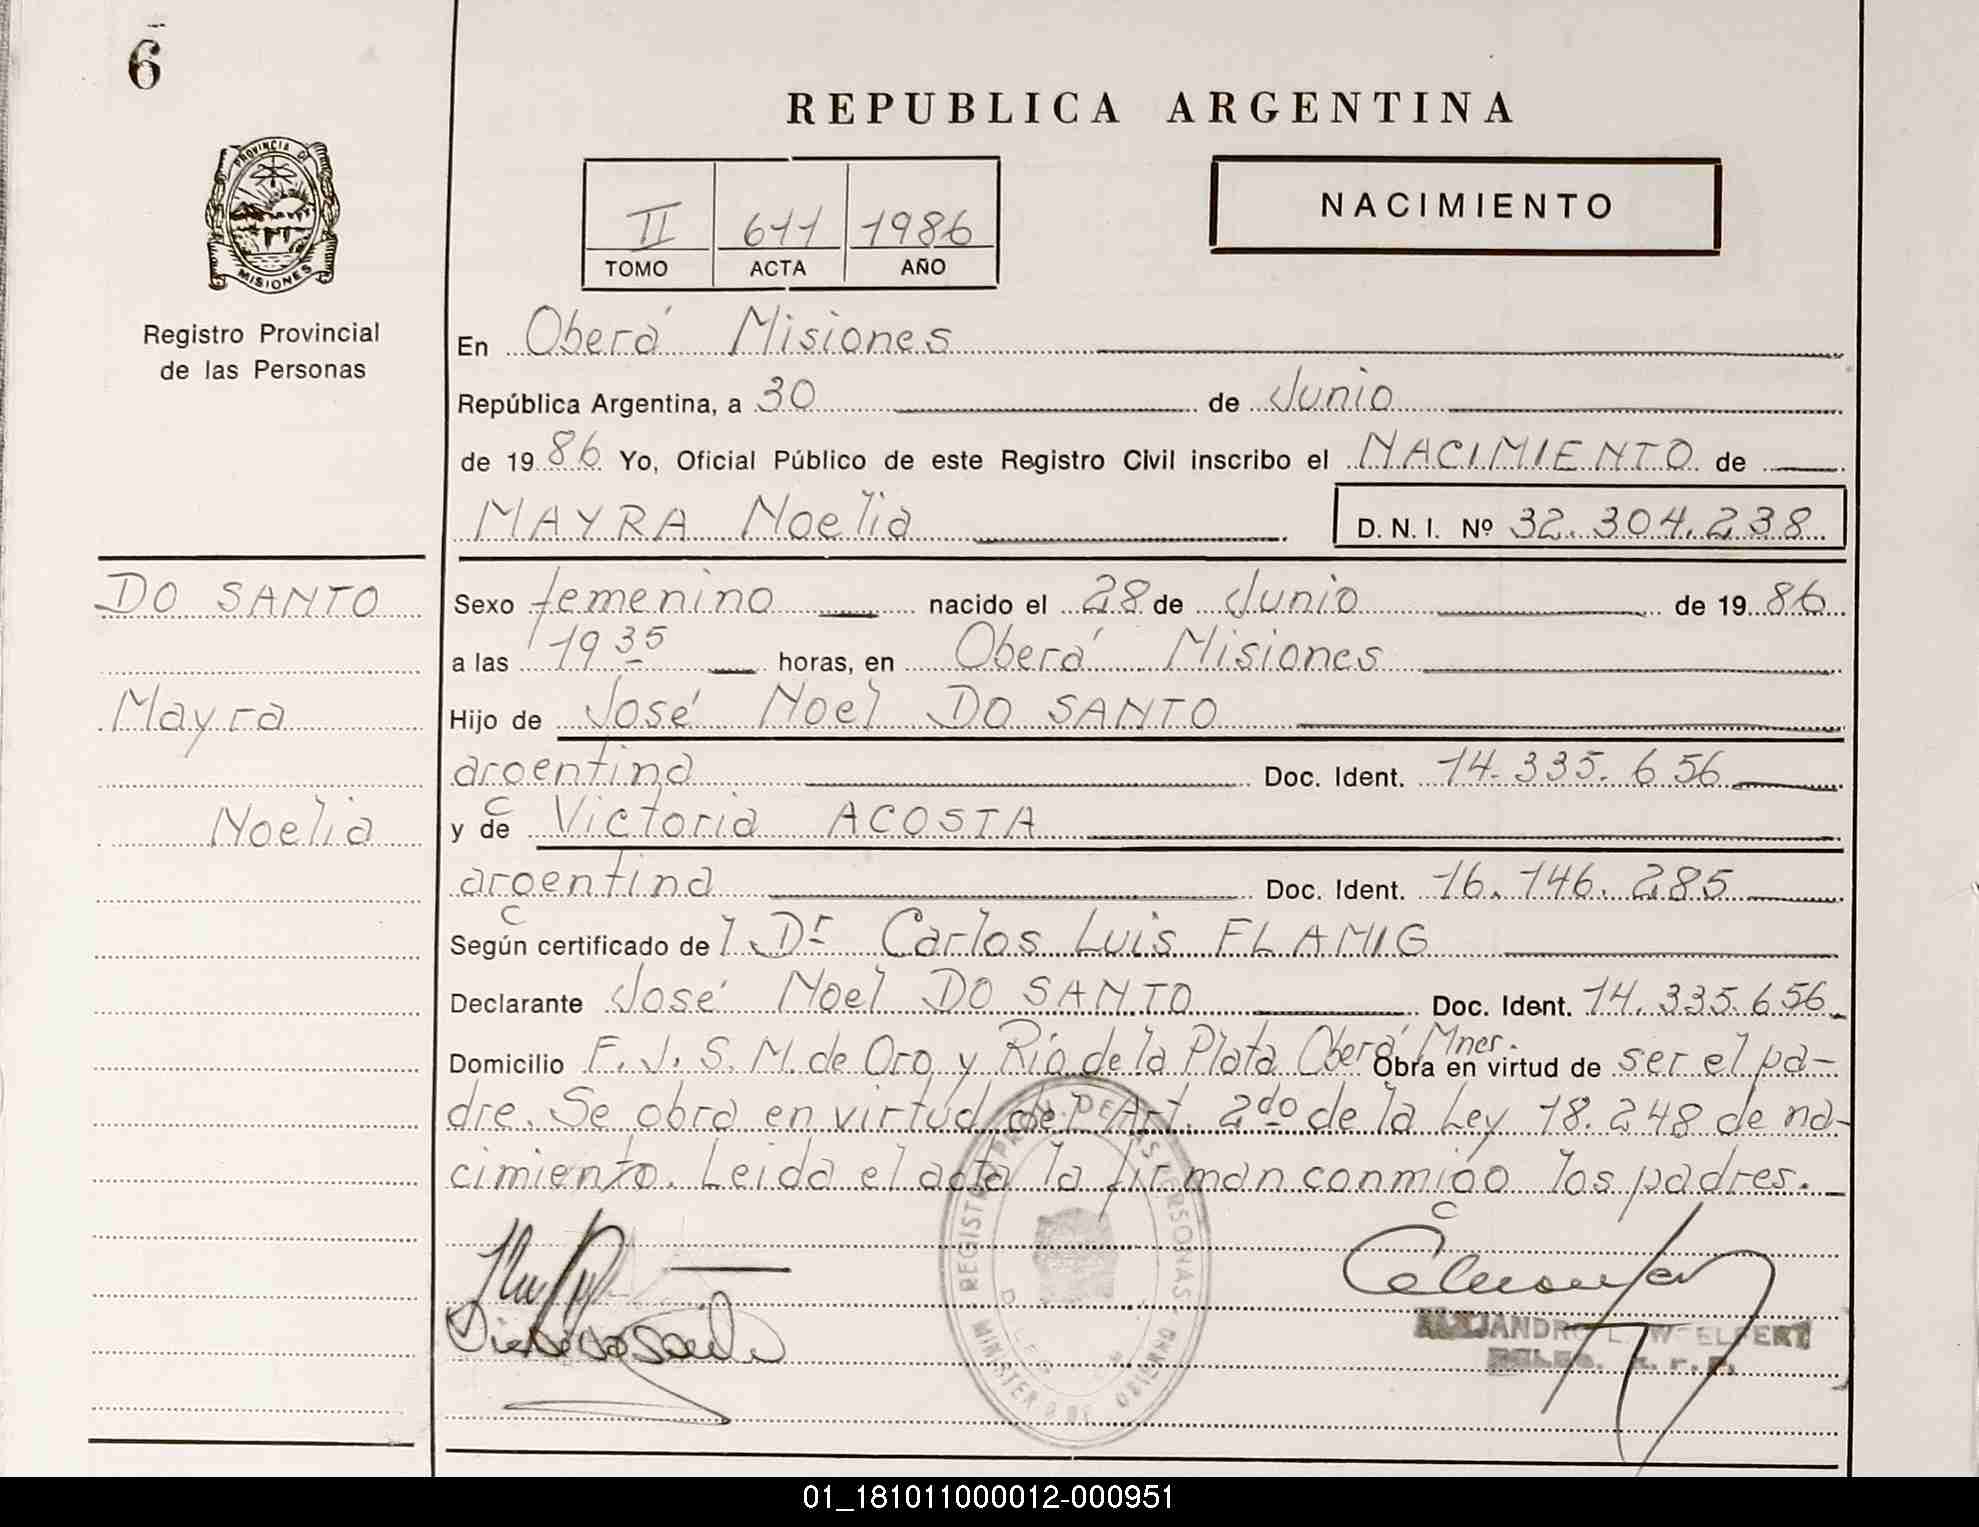 6
REPUBLICA ARGENTINA
PROVINCIA DE
MISIONES
Registro Provincial
de las Personas
II 611 1986
TOMO ACTA AÑO
NACIMIENTO
En Oberá Misiones
República Argentina, a 30 de Junio
de 1986 Yo, Oficial Público de este Registro Civil inscribo el NACIMIENTO de
MAYRA Noelia D. N. I. Nº 32.304.238
DO SANTO
Mayra
Noelia
Sexo femenino nacido el 28 de Junio de 1986
a las 19 35 horas, en Oberá Misiones
Hijo de José Noel DO SANTO
argentina Doc. Ident. 14.335.656
y de Victoria ACOSTA
argentina Doc. Ident. 16.146.285
Según certificado del Dr Carlos Luis FLAMIG
Declarante José Noel DO SANTO Doc. Ident. 14.335.656
Domicilio F. J. S. M. de Oro y Río de la Plata Oberá Mnes. Obra en virtud de ser el pa-
dre. Se obra en virtud del Art. 2do de la Ley 18.248 de na-
cimiento. Leida el acta la firman conmigo los padres.
ALEJANDRO L. WELPERT
01_181011000012-000951